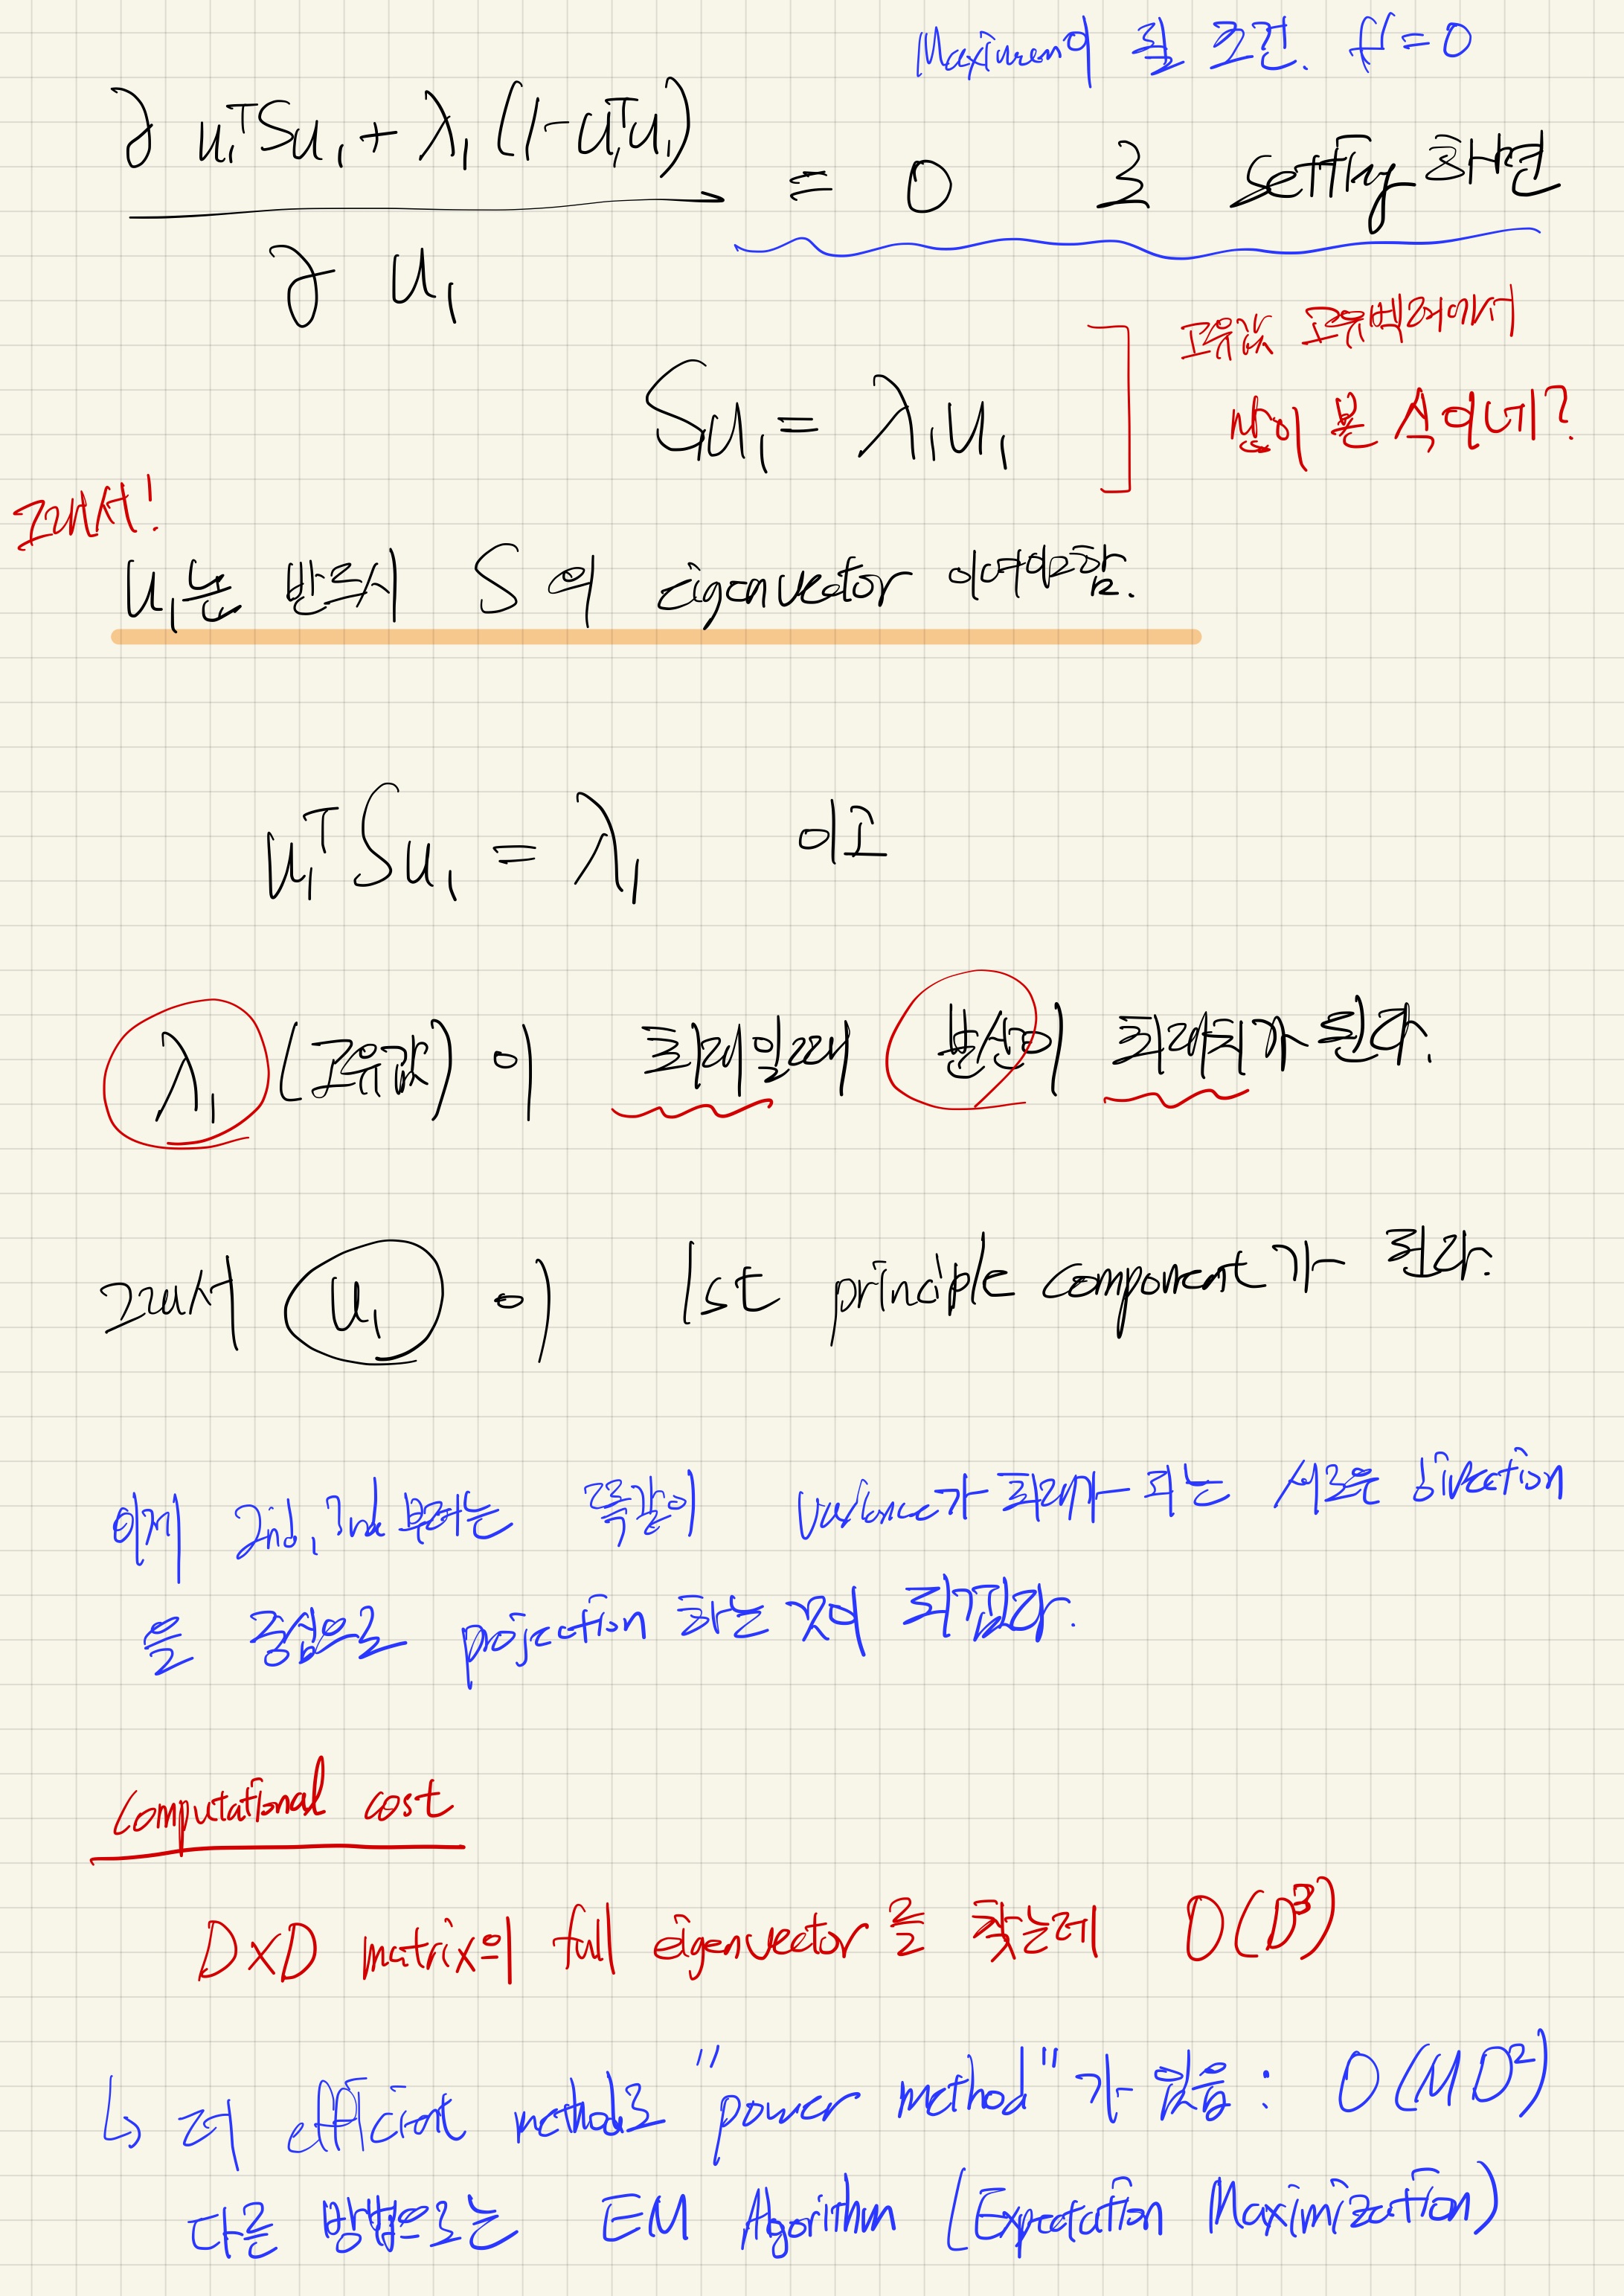 Maximum이 될 조건. f' = 0
∂ u₁ᵀSu₁ + λ₁(1-u₁ᵀu₁)
= 0 로 setting 하면
∂ u₁
고유값 고유벡터에서
Su₁ = λ₁u₁
많이 본 식이네?
그래서!
u₁는 반드시 S의 eigenvector 이여야함.
u₁ᵀSu₁ = λ₁ 이고
λ₁ (고유값)이 최대일때 분산이 최대치가 된다.
그래서 u₁이 1st principle component가 된다.
이제 2nd, 3nd 부터는 똑같이 variance가 최대가 되는 새로운 direction
을 중심으로 projection 하는 것이 되겠다.
Computational cost
D×D matrix의 full eigenvector를 찾는데 O(D³)
↳ 더 efficient method로 "power method"가 있음 : O(MD²)
다른 방법으로는 EM Algorithm (Expectation Maximization)